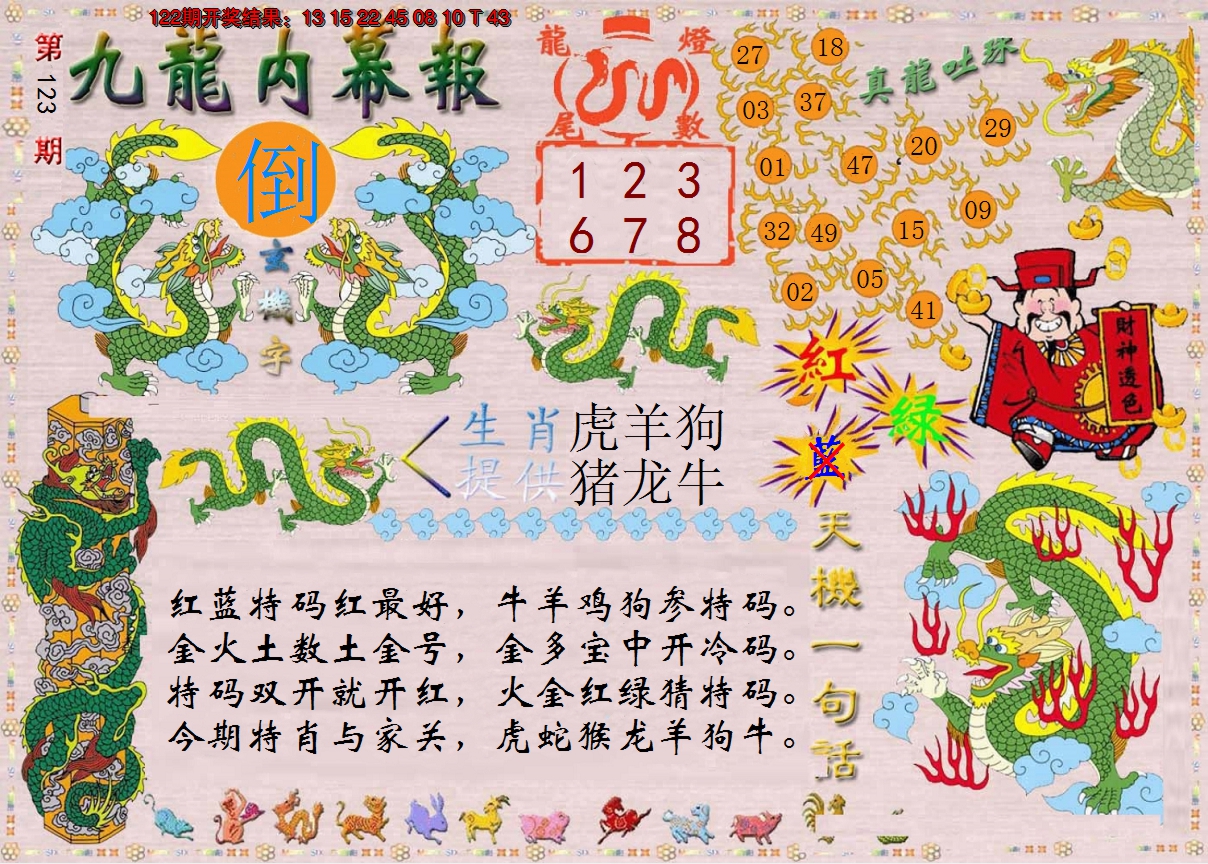 122期开奖结果：13 15 22 45 08 10 T 43
第123期
九龍内幕報
倒
玄機字
龍燈
尾數
1 2 3
6 7 8
真龍吐珠
27 18
03 37
01 47 20 29
32 49 15 09
02 05 41
財神透色
紅
綠
藍
生肖 虎羊狗
提供 猪龙牛
天機一句話
红蓝特码红最好，牛羊鸡狗参特码。
金火土数土金号，金多宝中开冷码。
特码双开就开红，火金红绿猜特码。
今期特肖与家关，虎蛇猴龙羊狗牛。